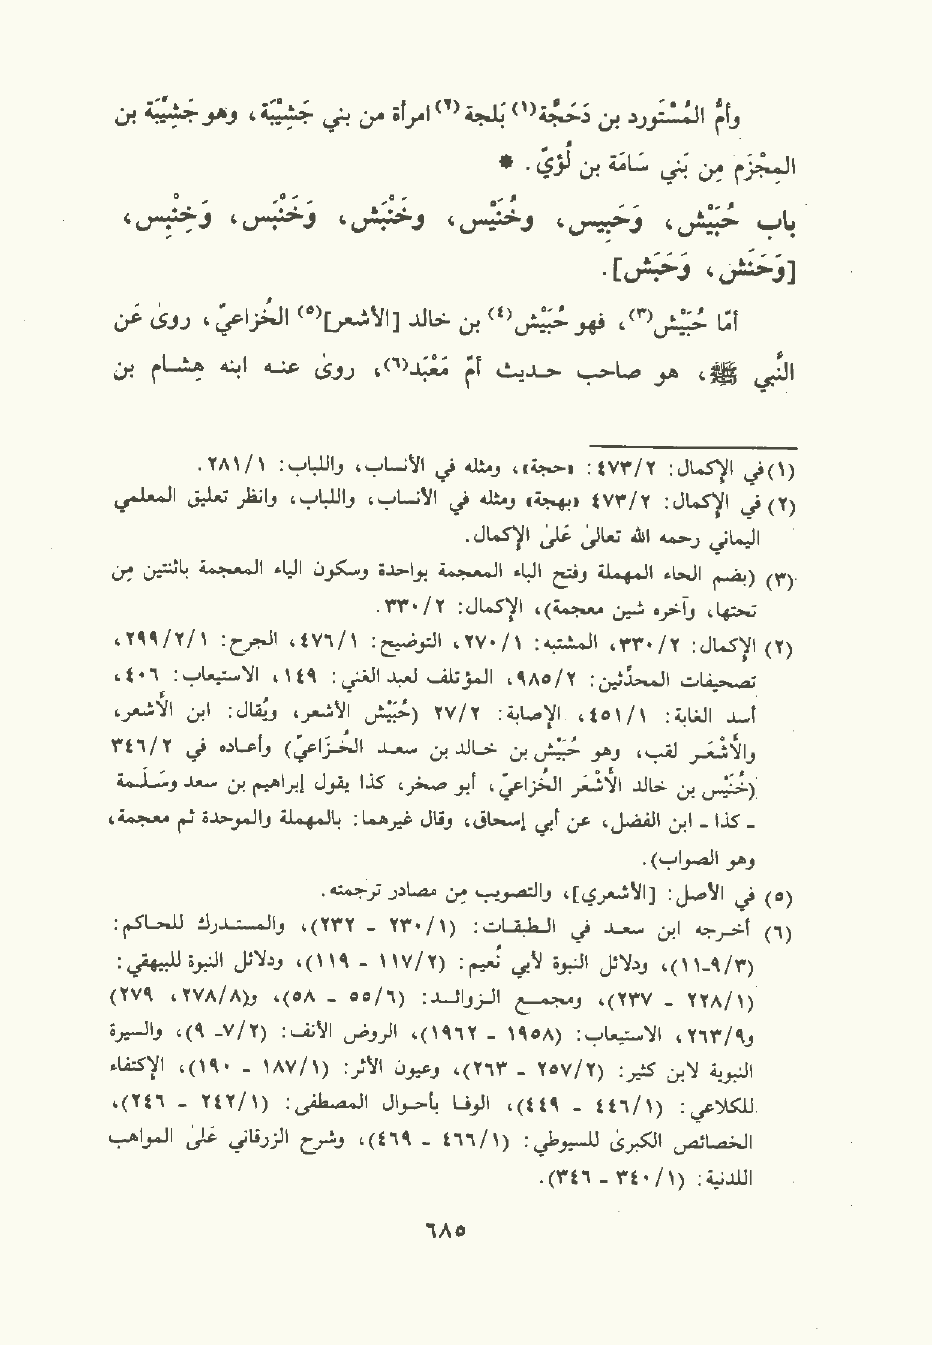 وأمُّ المُسْتَورد بن دَحَجَّة(١) بَلجة(٢) امرأة من بني جَشِيْبَة ، وهو جَشِيْبَة بن
المِجْزَم مِن بَني سَامَة بن لُؤيّ . *
باب حُبَيْش، وَحَبِيس، وخُنَيْس، وخَنْبَش، وَخَنْبَس، وَخِنْبِس،
[وَحَنَش ، وَحَبَش].
أمّا حُبَيْش(٣)، فهو حُبَيْش(٤) بن خالد [الأشعر](٥) الخُزاعيّ ، روىٰ عَن
النَّبي ﷺ، هو صاحب حديث أمّ مَعْبَد(٦)، روىٰ عنه ابنه هِشام بن
(١) في الإِكمال: ٢/ ٤٧٣: «حجة»، ومثله في الأنساب، واللباب: ١ / ٢٨١.
(٢) في الإِكمال: ٢/ ٤٧٣ «بهجة» ومثله في الأنساب، واللباب، وانظر تعليق المعلمي
اليماني رحمه الله تعالىٰ عَلىٰ الإِكمال.
(٣) (بضم الحاء المهملة وفتح البا المعجمة بواحدة وسكون الياء المعجمة باثنتين مِن
تحتها، وآخره شين معجمة)، الإِكمال: ٢ / ٣٣٠.
(٢) الإِكمال: ٢ / ٣٣٠، المشتبه: ١ / ٢٧٠، التوضيح: ١ / ٤٧٦، الجرح: ١ /٢ /٢٩٩،
تصحيفات المحدِّثين: ٢ / ٩٨٥، المؤتلف لعبد الغني: ١٤٩ ، الاستيعاب: ٤٠٦،
أسد الغابة: ١ / ٤٥١، الإِصابة: ٢ / ٢٧ (حُبَيْش الأشعر، ويُقال: ابن الأَشعر،
والأَشْعَر لقب، وهو حُبَيْش بن خالد بن سعد الخُزاعيّ) وأعاده في ٢ / ٣٤٦
(خُنَيْس بن خالد الأَشْعَر الخُزاعيّ، أبو صخر، كذا يقول إبراهيم بن سعد وسَلَمة
- كذا - ابن الفضل، عن أبي إسحاق، وقال غيرهما: بالمهملة والموحدة ثم معجمة،
وهو الصواب).
(٥) في الأصل: [الأشعري]، والتصويب مِن مصادر ترجمته.
(٦) أخرجه ابن سعد في الطبقات: (١ / ٢٣٠ - ٢٣٢)، والمستدرك للحاكم:
(٣/ ٩-١١)، ودلائل النبوة لأبي نُعيم: (٢ / ١١٧ - ١١٩)، ودلائل النبوة للبيهقي:
(١ / ٢٢٨ - ٢٣٧)، ومجمع الزوائد: (٦ / ٥٥ - ٥٨)، و(٨ / ٢٧٨، ٢٧٩)
و٩ / ٢٦٣، الاستيعاب: (١٩٥٨ - ١٩٦٢)، الروض الأنف: (٢ / ٧- ٩)، والسيرة
النبوية لابن كثير: (٢ / ٢٥٧ - ٢٦٣)، وعيون الأثر: (١ / ١٨٧ - ١٩٠)، الإِكتفاء
للكلاعي: (١ / ٤٤٦ - ٤٤٩)، الوفا بأحوال المصطفى: (١ / ٢٤٢ - ٢٤٦)،
الخصائص الكبرىٰ للسيوطي: (١ / ٤٦٦ - ٤٦٩)، وشرح الزرقاني عَلىٰ المواهب
اللدنية: (١ / ٣٤٠ - ٣٤٦).
٦٨٥